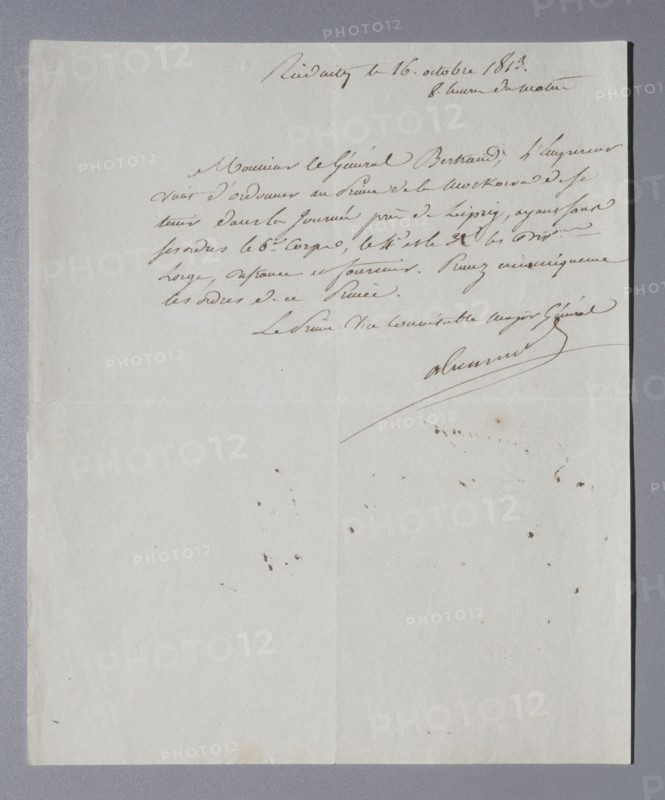 Reudnitz le 16. octobre 1813.
8. heures du matin
Monsieur le Général Bertrand, l'Empereur
vient d'ordonner au Prince de la Moskowa de se
tenir dans la journée près de Leipzig, ayant sous
ses ordres le 6e. Corps, le 4e. et le 3e. les Divisions
Lorge, defrance et fournier. Prenez
les ordres de ce Prince.
Le Prince Vice Connétable major Général
PHOTO12